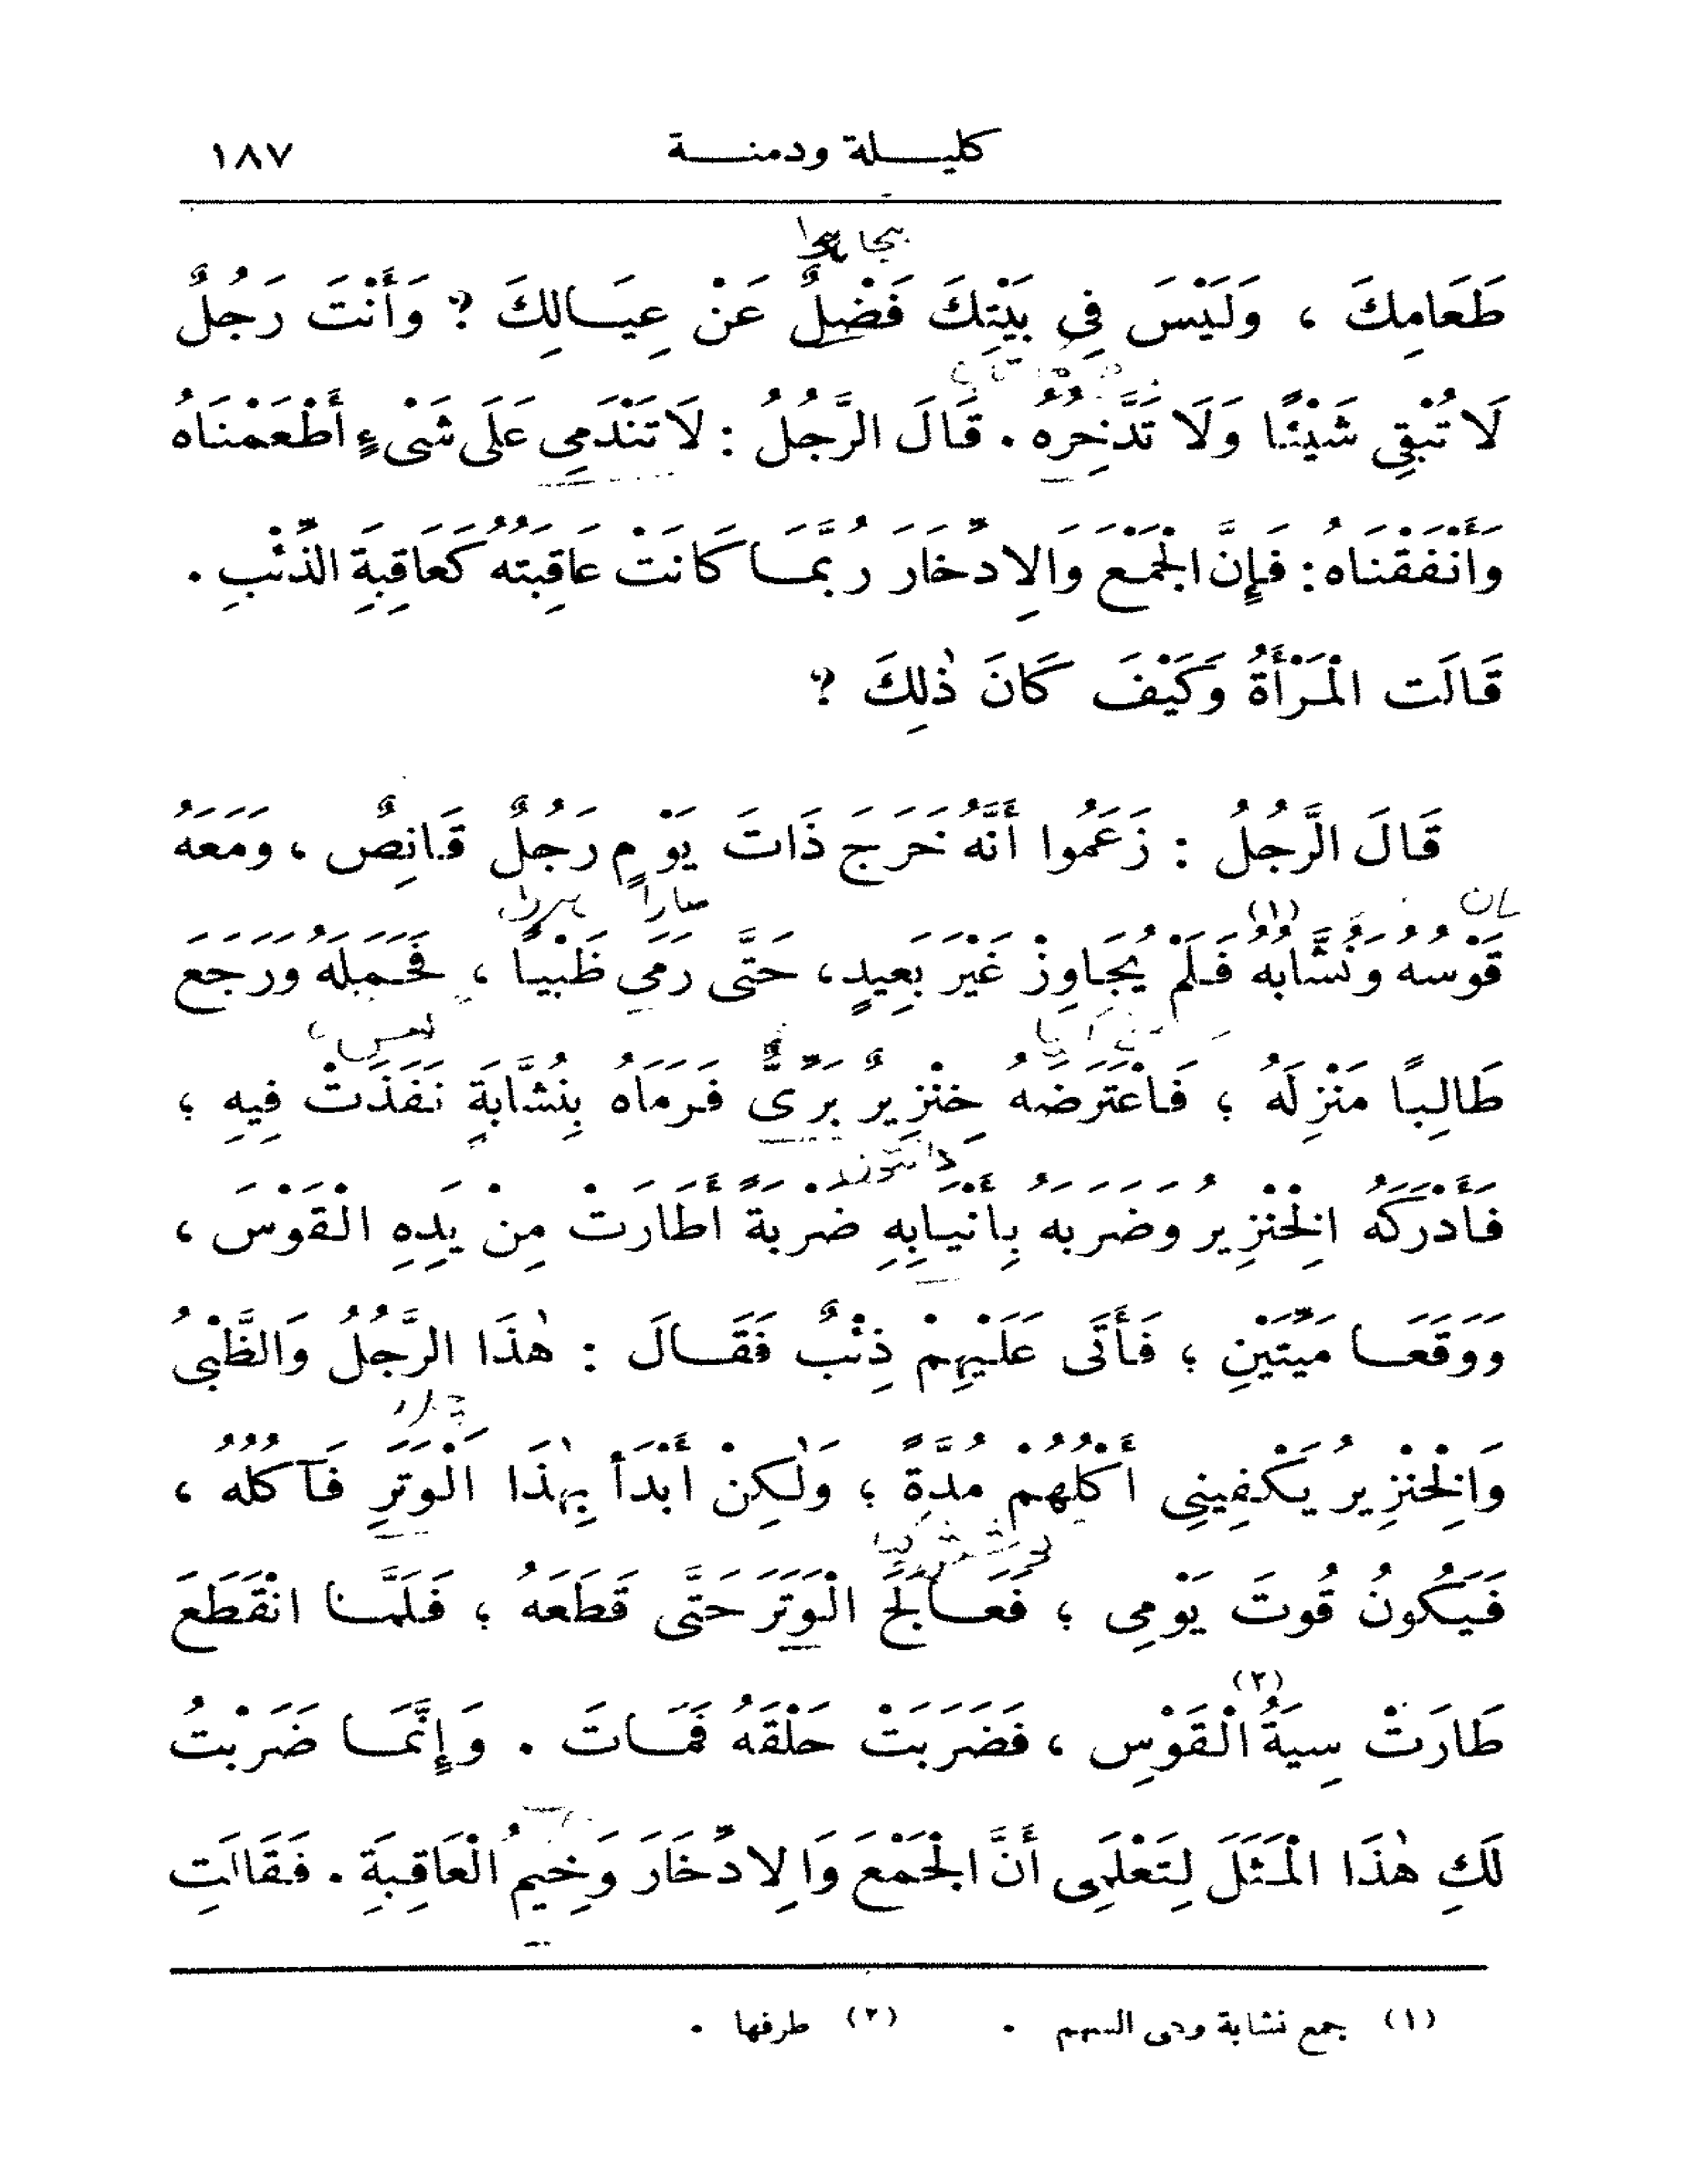 كليلة ودمنة ١٨٧
طَعَامِكَ ، وَلَيْسَ فِى بَيْتِكَ فَضْلٌ عَنْ عِيَالِكَ ؟ وَأَنْتَ رَجُلٌ
لَا تُبْقِى شَيْئًا وَلَا تَدَّخِرُهُ . قَالَ الرَّجُلُ : لَا تَنْدَمِى عَلَى شَىْءٍ أَطْعَمْنَاهُ
وَأَنْفَقْنَاهُ : فَإِنَّ الْجَمْعَ وَالِادِّخَارَ رُبَّمَا كَانَتْ عَاقِبَتُهُ كَعَاقِبَةِ الذِّئْبِ .
قَالَت الْمَرْأَةُ وَكَيْفَ كَانَ ذٰلِكَ ؟
قَالَ الرَّجُلُ : زَعَمُوا أَنَّهُ خَرَجَ ذَاتَ يَوْمٍ رَجُلٌ قَانِصٌ ، وَمَعَهُ
قَوْسُهُ وَنُشَّابُهُ (١) فَلَمْ يُجَاوِزْ غَيْرَ بَعِيدٍ ، حَتَّى رَمَى ظَبْيًا ، فَحَمَلَهُ وَرَجَعَ
طَالِبًا مَنْزِلَهُ ؛ فَاعْتَرَضَهُ خِنْزِيرٌ بَرِّىٌّ فَرَمَاهُ بِنُشَّابَةٍ نَفَذَتْ فِيهِ ؛
فَأَدْرَكَهُ الْخِنْزِيرُ وَضَرَبَهُ بِأَنْيَابِهِ ضَرْبَةً أَطَارَتْ مِنْ يَدِهِ الْقَوْسَ ،
وَوَقَعَا مَيِّتَيْنِ ؛ فَأَتَى عَلَيْهِمْ ذِئْبٌ فَقَالَ : هٰذَا الرَّجُلُ وَالظَّبْىُ
وَالْخِنْزِيرُ يَكْفِينِى أَكْلُهُمْ مُدَّةً ؛ وَلٰكِنْ أَبْدَأُ بِهٰذَا الْوَتَرِ فَآكُلُهُ ،
فَيَكُونُ قُوتَ يَوْمِى ؛ فَعَالَجَ الْوَتَرَ حَتَّى قَطَعَهُ ؛ فَلَمَّا انْقَطَعَ
طَارَتْ سِيَةُ (٢) الْقَوْسِ ، فَضَرَبَتْ حَلْقَهُ فَمَاتَ . وَإِنَّمَا ضَرَبْتُ
لَكِ هٰذَا الْمَثَلَ لِتَعْلَمِى أَنَّ الْجَمْعَ وَالِادِّخَارَ وَخِيمُ الْعَاقِبَةِ . فَقَالَتِ
(١) جمع نشابة وهى السهم . (٢) طرفها .